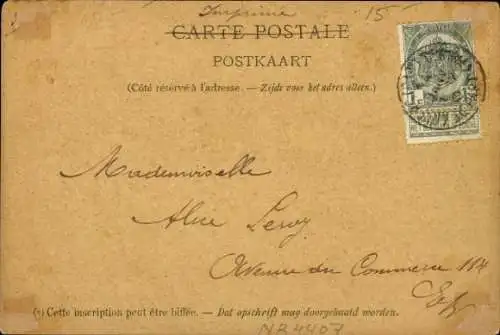 Imprimé 15
CARTE POSTALE
POSTKAART
(Côté réservé à l'adresse. — Zijde voor het adres alleen.)
1
Mademoiselle
Alice Leroy
Avenue du Commerce 114
E/V
(*) Cette inscription peut être biffée. — Dat opschrift mag doorgehaald worden.
NR4407